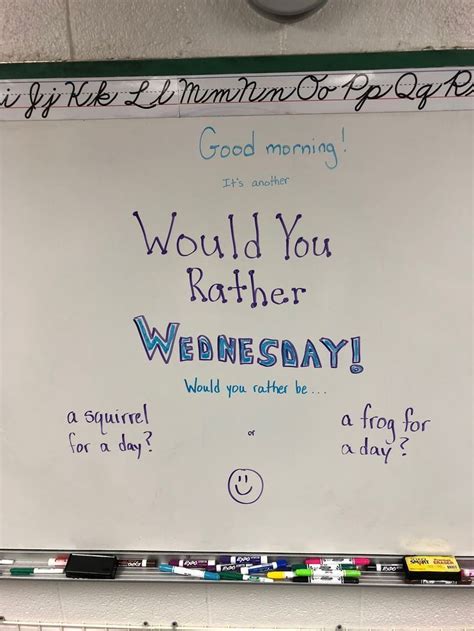 i Jj Kk Ll Mm Nn Oo Pp Qq R
Good morning!
It's another
Would You
Rather
WEDNESDAY!
Would you rather be...
a squirrel
for a day?
or
a frog for
a day?
EXPO